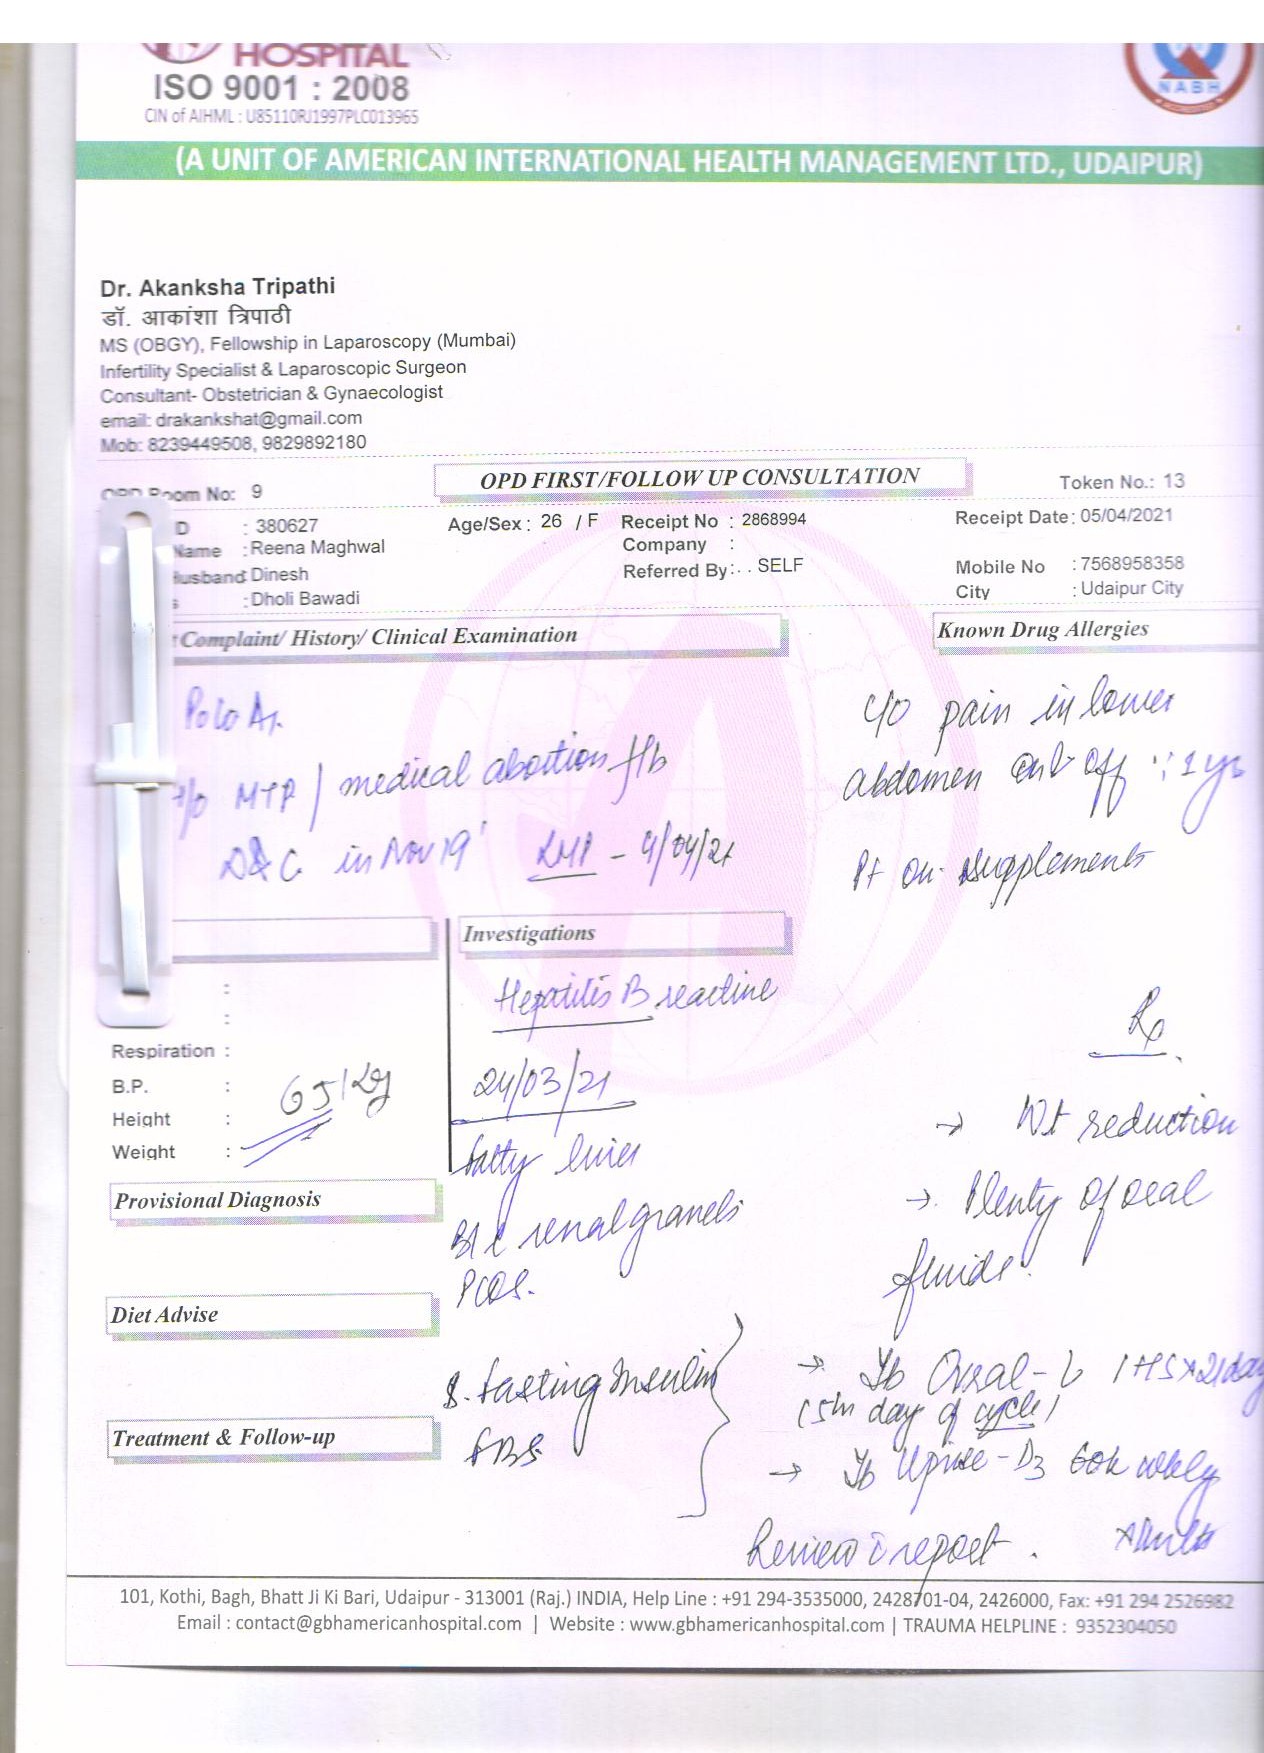 HOSPITAL
ISO 9001 : 2008
CIN of AIHML : U85110RJ1997PLC013965
NABH
(A UNIT OF AMERICAN INTERNATIONAL HEALTH MANAGEMENT LTD., UDAIPUR)
Dr. Akanksha Tripathi
डॉ. आकांशा त्रिपाठी
MS (OBGY), Fellowship in Laparoscopy (Mumbai)
Infertility Specialist & Laparoscopic Surgeon
Consultant- Obstetrician & Gynaecologist
email: drakankshat@gmail.com
Mob: 8239449508, 9829892180
OPD Room No: 9
OPD FIRST/FOLLOW UP CONSULTATION
Token No.: 13
D : 380627
Age/Sex : 26 / F
Receipt No : 2868994
Receipt Date: 05/04/2021
Name : Reena Maghwal
Company :
Husband: Dinesh
Referred By: . . SELF
Mobile No : 7568958358
s : Dholi Bawadi
City : Udaipur City
Complaint/ History/ Clinical Examination
Known Drug Allergies
P0L0A1.
h/o MTP / medical abortion f/b
D&C in Nov 19' LMP - 4/04/21
c/o pain in lower
abdomen on & off 1 yr
Pt on supplements
Investigations
Hepatitis B reactive
24/03/21
fatty liver
B/L renal gravels
PCOS.
S. fasting Insulin
FBS
:
:
Respiration :
B.P. :
Height :
Weight : 65 kg
Provisional Diagnosis
Diet Advise
Treatment & Follow-up
Rx
→ Wt reduction
→ Plenty of oral
fluids.
→ Tb Ovral-L 1 HS x 21 day
(5th day of cycle)
→ Tb Uprise-D3 60k wkly
Review c report.
101, Kothi, Bagh, Bhatt Ji Ki Bari, Udaipur - 313001 (Raj.) INDIA, Help Line : +91 294-3535000, 2428701-04, 2426000, Fax: +91 294 2526982
Email : contact@gbhamericanhospital.com | Website : www.gbhamericanhospital.com | TRAUMA HELPLINE : 9352304050